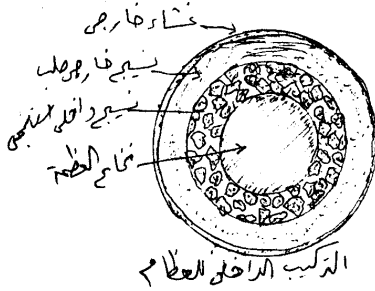 غشاء خارجى
نسيج خارجى صلب
نسيج داخلى اسفنجى
نخاع العظمة
التركيب الداخلى للعظام